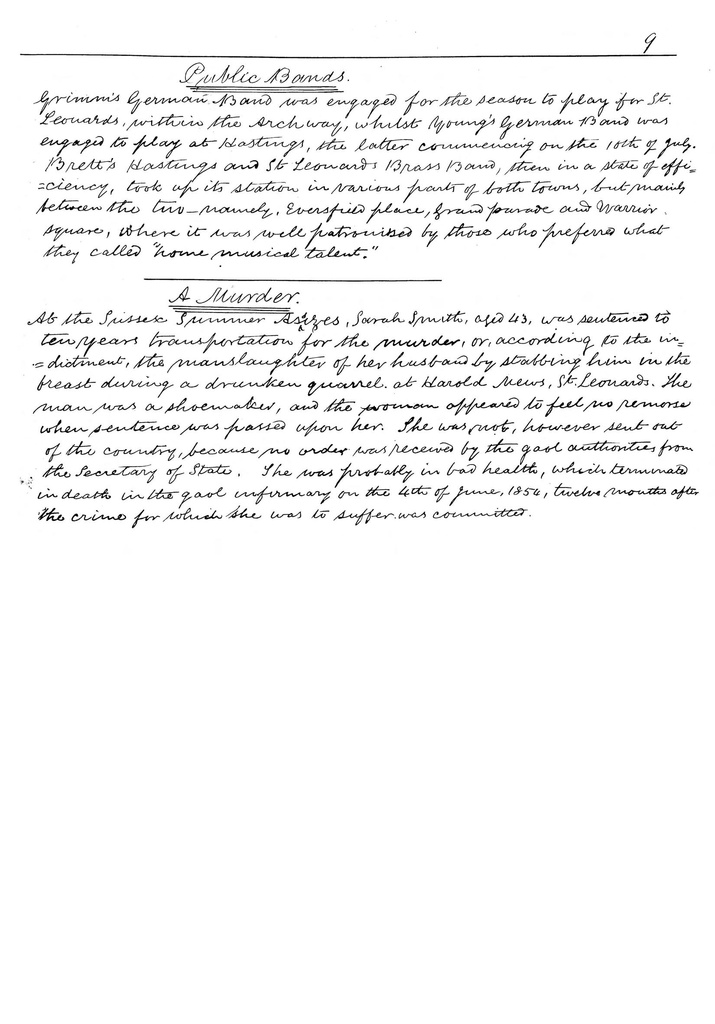 9
Public Bands.
Grimm's German Band was engaged for the season to play for St.
Leonards, within the Archway, whilst Young's German Band was
engaged to play at Hastings, the latter commencing on the 10th of July.
Brett's Hastings and St Leonards Brass Band, then in a state of effi-
=ciency, took up its station in various parts of both towns, but mainly
between the two—namely, Eversfield place, Grand parade and Warrior
square, where it was well patronised by those who preferred what
they called "home musical talent."
A Murder.
At the Sussex Summer Assizes, Sarah Smith, aged 43, was sentenced to
ten years transportation for the murder, or, according to the in-
=dictment, the manslaughter of her husband by stabbing him in the
breast during a drunken quarrel at Harold Mews, St. Leonards. The
man was a shoemaker, and the woman appeared to feel no remorse
when sentence was passed upon her. She was not, however sent out
of the country, because no order was received by the gaol authorities from
the Secretary of State. She was probably in bad health, which terminated
in death in the gaol infirmary on the 4th of June, 1854, twelve months after
the crime for which she was to suffer was committed.